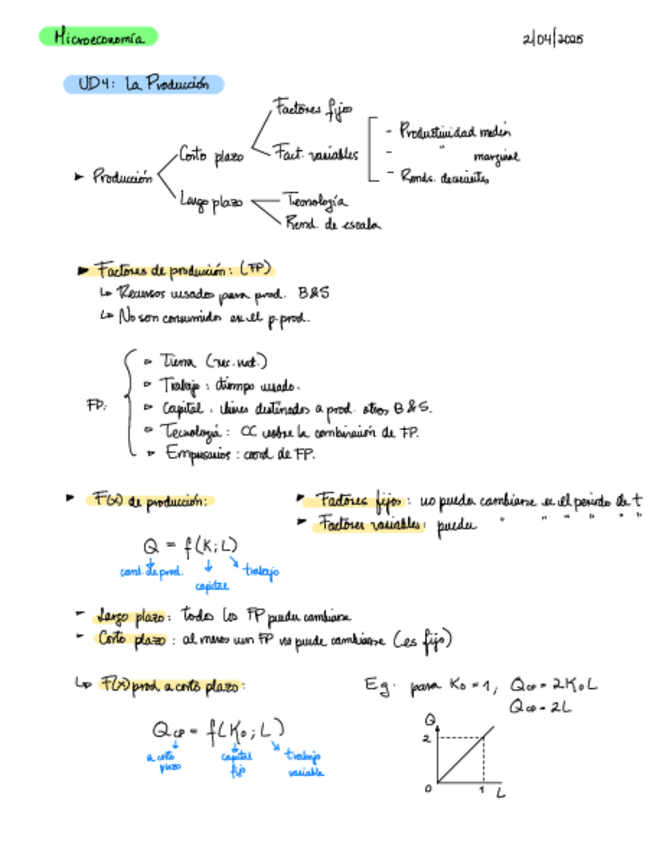 Microeconomía
2/04/2025
UD4: La Producción
Factores fijos
Corto plazo
Fact. variables
- Productividad media
- " marginal
- Rends. decrecientes
► Producción
Largo plazo
Tecnología
Rend. de escala
► Factores de producción: (FP)
↳ Recursos usados para prod. B&S
↳ No son consumidos en el p.prod.
FP:
▹ Tierra (rec. nat.)
▹ Trabajo: tiempo usado.
▹ Capital: bienes destinados a prod. otros B&S.
▹ Tecnología: CC sobre la combinación de FP.
▹ Empresarios: coord de FP.
► F(x) de producción:
Q = f(K; L)
cant. de prod.
capital
trabajo
► Factores fijos: no pueden cambiarse en el periodo de t
► Factores variables: pueden " " " " "
- Largo plazo: todos los FP pueden cambiarse
- Corto plazo: al menos un FP no puede cambiarse (es fijo)
↳ F(x) prod a corto plazo:
Qcp = f(K₀; L)
a corto plazo
capital fijo
trabajo variable
Eg. para K₀ = 1, Qcp = 2K₀L
Qcp = 2L
Q
2
0
1
L